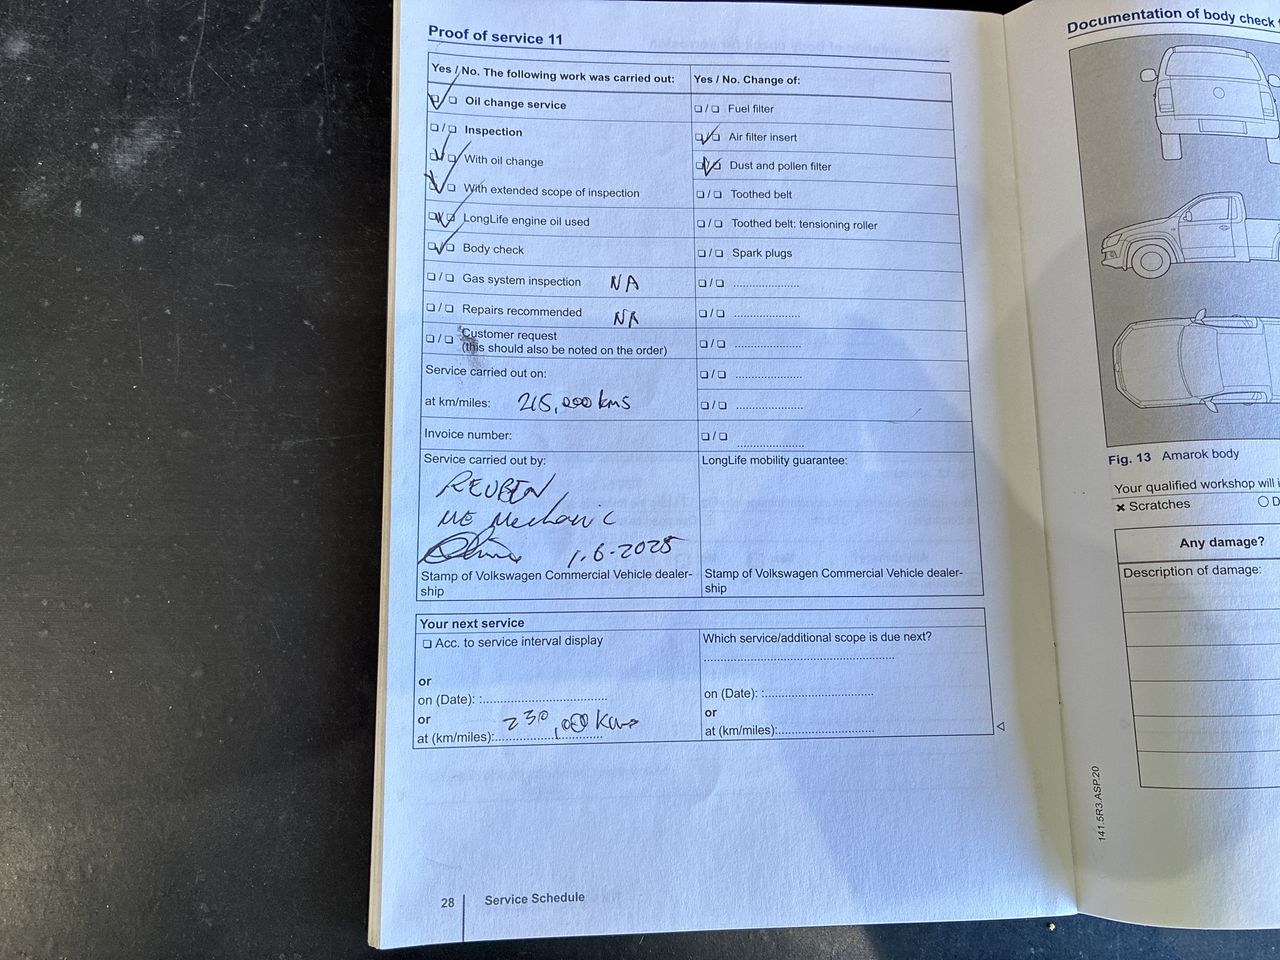 Proof of service 11
Yes / No. The following work was carried out:
Oil change service
Inspection
With oil change
With extended scope of inspection
LongLife engine oil used
Body check
Gas system inspection NA
Repairs recommended NA
Customer request
(this should also be noted on the order)
Service carried out on:
at km/miles: 215,000 kms
Invoice number:
Service carried out by:
REUBEN
Mechanic
1.6.2025
Stamp of Volkswagen Commercial Vehicle dealer-
ship
Yes / No. Change of:
Fuel filter
Air filter insert
Dust and pollen filter
Toothed belt
Toothed belt: tensioning roller
Spark plugs
LongLife mobility guarantee:
Stamp of Volkswagen Commercial Vehicle dealer-
ship
Your next service
Acc. to service interval display
or
on (Date):
or
at (km/miles): 230,000 kms
Which service/additional scope is due next?
on (Date):
or
at (km/miles):
28 Service Schedule
Documentation of body check
Fig. 13 Amarok body
Your qualified workshop will
Scratches
Any damage?
Description of damage:
141.5R3.ASP.20